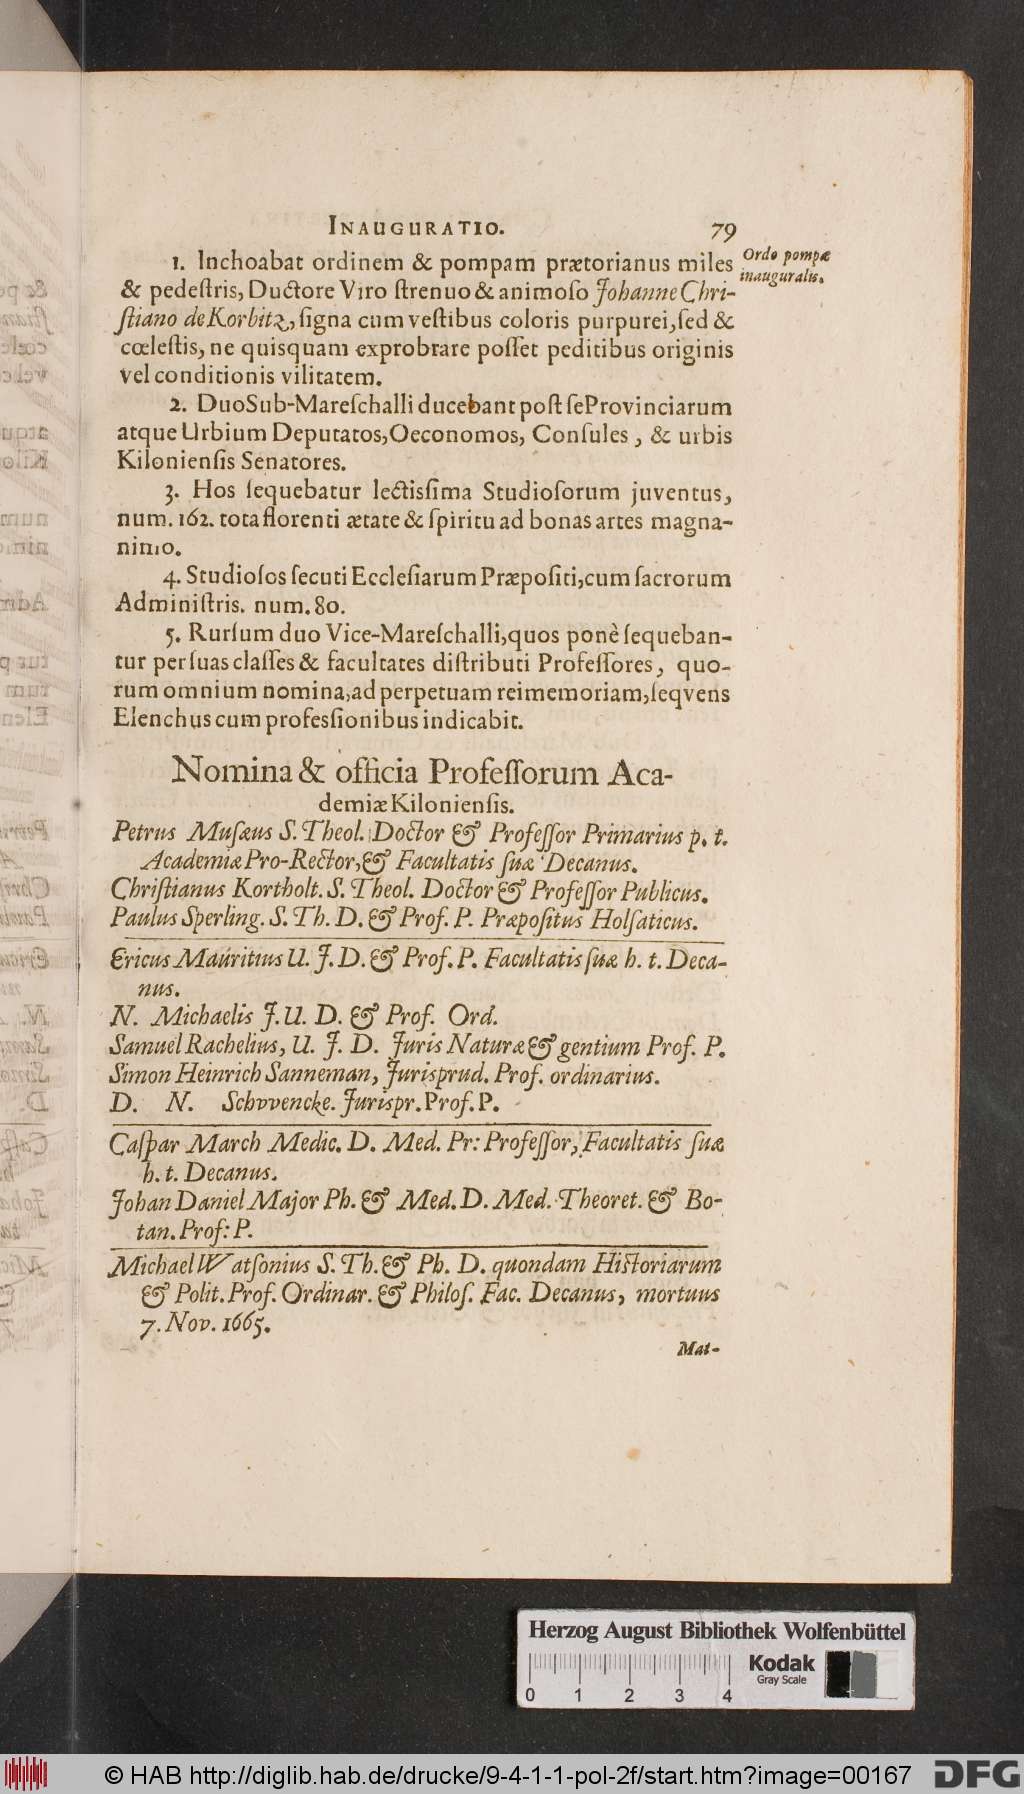 INAUGURATIO. 79
1. Inchoabat ordinem & pompam prætorianus miles
Ordo pompæ
inauguralis.
& pedeſtris, Ductore Viro ſtrenuo & animoſo Johanne Chri-
ſtiano de Korbitz, ſigna cum veſtibus coloris purpurei, ſed &
cœleſtis, ne quisquam exprobrare poſſet peditibus originis
vel conditionis vilitatem.
2. Duo Sub-Mareſchalli ducebant poſt ſe Provinciarum
atque Urbium Deputatos, Oeconomos, Conſules, & urbis
Kilonienſis Senatores.
3. Hos ſequebatur lectisſima Studioſorum juventus,
num. 162. tota florenti ætate & ſpiritu ad bonas artes magna-
nimo.
4. Studioſos ſecuti Eccleſiarum Præpoſiti, cum ſacrorum
Adminiſtris. num. 80.
5. Rurſum duo Vice-Mareſchalli, quos ponè ſequeban-
tur per ſuas claſſes & facultates diſtributi Profeſſores, quo-
rum omnium nomina, ad perpetuam rei memoriam, ſeqvens
Elenchus cum profesſionibus indicabit.
Nomina & officia Profeſſorum Aca-
demiæ Kilonienſis.
Petrus Muſæus S. Theol. Doctor & Profeſſor Primarius p. t.
Academiæ Pro-Rector, & Facultatis ſuæ Decanus.
Chriſtianus Kortholt. S. Theol. Doctor & Profeſſor Publicus.
Paulus Sperling. S. Th. D. & Prof. P. Præpoſitus Holſaticus.
Ericus Mauritius U. J. D. & Prof. P. Facultatis ſuæ h. t. Deca-
nus.
N. Michaelis J. U. D. & Prof. Ord.
Samuel Rachelius, U. J. D. Juris Naturæ & gentium Prof. P.
Simon Heinrich Sanneman, Jurisprud. Prof. ordinarius.
D. N. Schvvencke. Jurispr. Prof. P.
Caſpar March Medic. D. Med. Pr: Profeſſor, Facultatis ſuæ
h. t. Decanus.
Johan Daniel Major Ph. & Med. D. Med. Theoret. & Bo-
tan. Prof: P.
Michael Watſonius S. Th. & Ph. D. quondam Hiſtoriarum
& Polit. Prof. Ordinar. & Philoſ. Fac. Decanus, mortuus
7. Nov. 1665.
Mat-
Herzog August Bibliothek Wolfenbüttel
0 1 2 3 4
Kodak
Gray Scale
© HAB http://diglib.hab.de/drucke/9-4-1-1-pol-2f/start.htm?image=00167
DFG